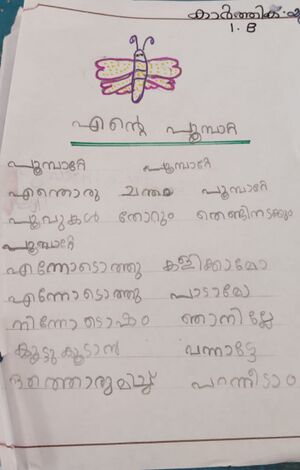 കാർത്തിക.
1.B
എന്റെ പൂമ്പാറ്റ
പൂമ്പാറ്റേ പൂമ്പാറ്റേ
എന്തൊരു ചന്തം പൂമ്പാറ്റേ
പൂവുകൾ തോറും തെണ്ടിനടക്കും
പൂമ്പാറ്റേ
എന്നോടൊത്തു കളിക്കാമോ
എന്നോടൊത്തു പാടാമോ
നിന്നോടൊപ്പം ഞാനില്ലേ
കൂട്ടുകൂടാൻ വന്നാട്ടേ
ഒത്തൊരുമിച്ച് പറന്നീടാം